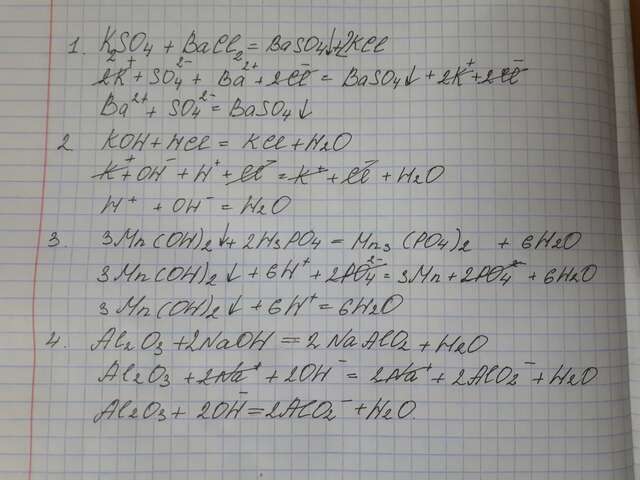 1. K₂SO₄ + BaCl₂ = BaSO₄↓ + 2KCl
2K⁺ + SO₄²⁻ + Ba²⁺ + 2Cl⁻ = BaSO₄↓ + 2K⁺ + 2Cl⁻
Ba²⁺ + SO₄²⁻ = BaSO₄↓
2 KOH + HCl = KCl + H₂O
K⁺ + OH⁻ + H⁺ + Cl⁻ = K⁺ + Cl⁻ + H₂O
H⁺ + OH⁻ = H₂O
3. 3Mn(OH)₂↓ + 2H₃PO₄ = Mn₃(PO₄)₂ + 6H₂O
3Mn(OH)₂↓ + 6H⁺ + 2PO₄²⁻ = 3Mn + 2PO₄ + 6H₂O
3Mn(OH)₂↓ + 6H⁺ = 6H₂O
4. Al₂O₃ + 2NaOH = 2NaAlO₂ + H₂O
Al₂O₃ + 2Na⁺ + 2OH⁻ = 2Na⁺ + 2AlO₂⁻ + H₂O
Al₂O₃ + 2OH⁻ = 2AlO₂⁻ + H₂O.